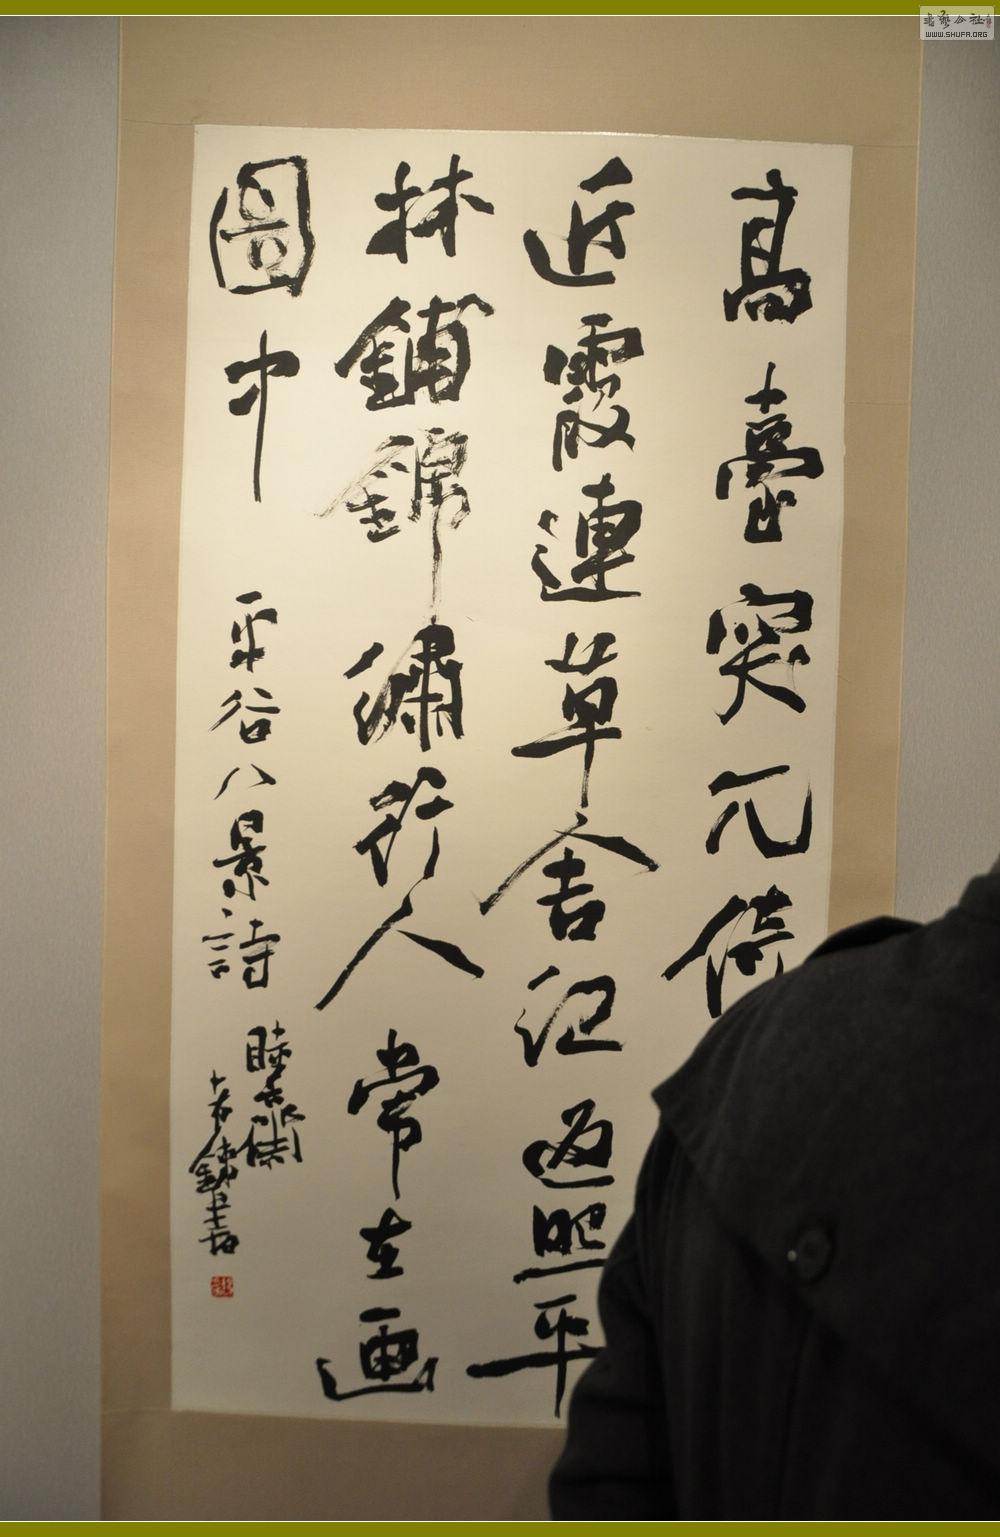 高臺突兀倚
近霞連草舍記返照平
林鋪錦繡行人常在画
圖中
平谷八景詩
書藝公社
WWW.SHUFA.ORG